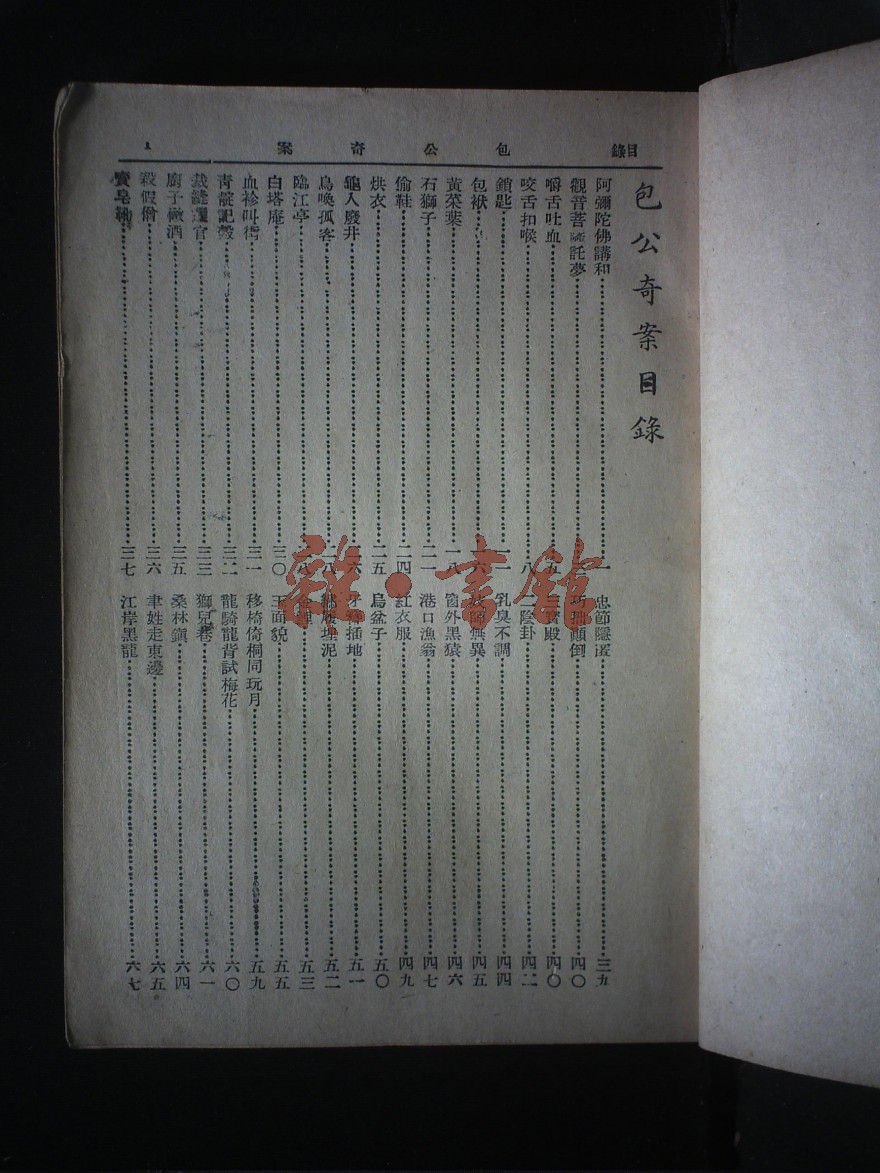 目錄 包公奇案 1
包公奇案目錄
阿彌陀佛講和 一 忠節隱匿 三九
觀音菩薩託夢 巧拙顛倒 四〇
嚼舌吐血 五 寶殿 四〇
咬舌扣喉 八 二陰卦 四二
鎖匙 一一 乳臭不調 四四
包袱 一六 無異 四五
黃菜葉 一八 窗外黑猿 四六
石獅子 二一 港口漁翁 四七
偷鞋 二四 紅衣服 四九
烘衣 二五 烏盆子 五〇
龜入廢井 二六 牙簪插地 五一
鳥喚孤客 二八 繡履埋泥 五二
臨江亭 二八 金鯉 五三
白塔庵 三〇 玉面貌 五五
血衫叫街 三一 移椅倚桐同玩月 五九
青靛記穀 三二 龍騎龍背試梅花 六〇
裁縫選官 三三 獅兒巷 六一
廚子做酒 三五 桑林鎮 六四
殺假僧 三六 聿姓走東邊 六五
賣皂靴 三七 江岸黑龍 六七
雜·書館